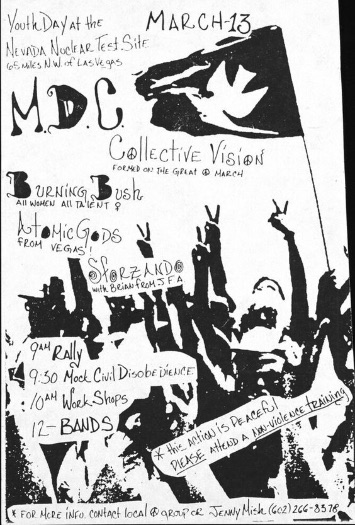 Youth Day at the
MARCH-13
Nevada Nuclear Test Site
65 miles N.W. of Las Vegas
M.D.C.
Collective Vision
Formed on the Great March
Burning Bush
All women all talent ♀
Atomic Gods
from Vegas!
Sforzando
with Brian from JFA
9AM Rally
9:30 Mock Civil Disobedience
10AM WorkShops
12- BANDS
* this action is Peaceful
PLEASE Attend a Non-violence training
* For more info. contact local group or Jenny Mish (602) 266-8578